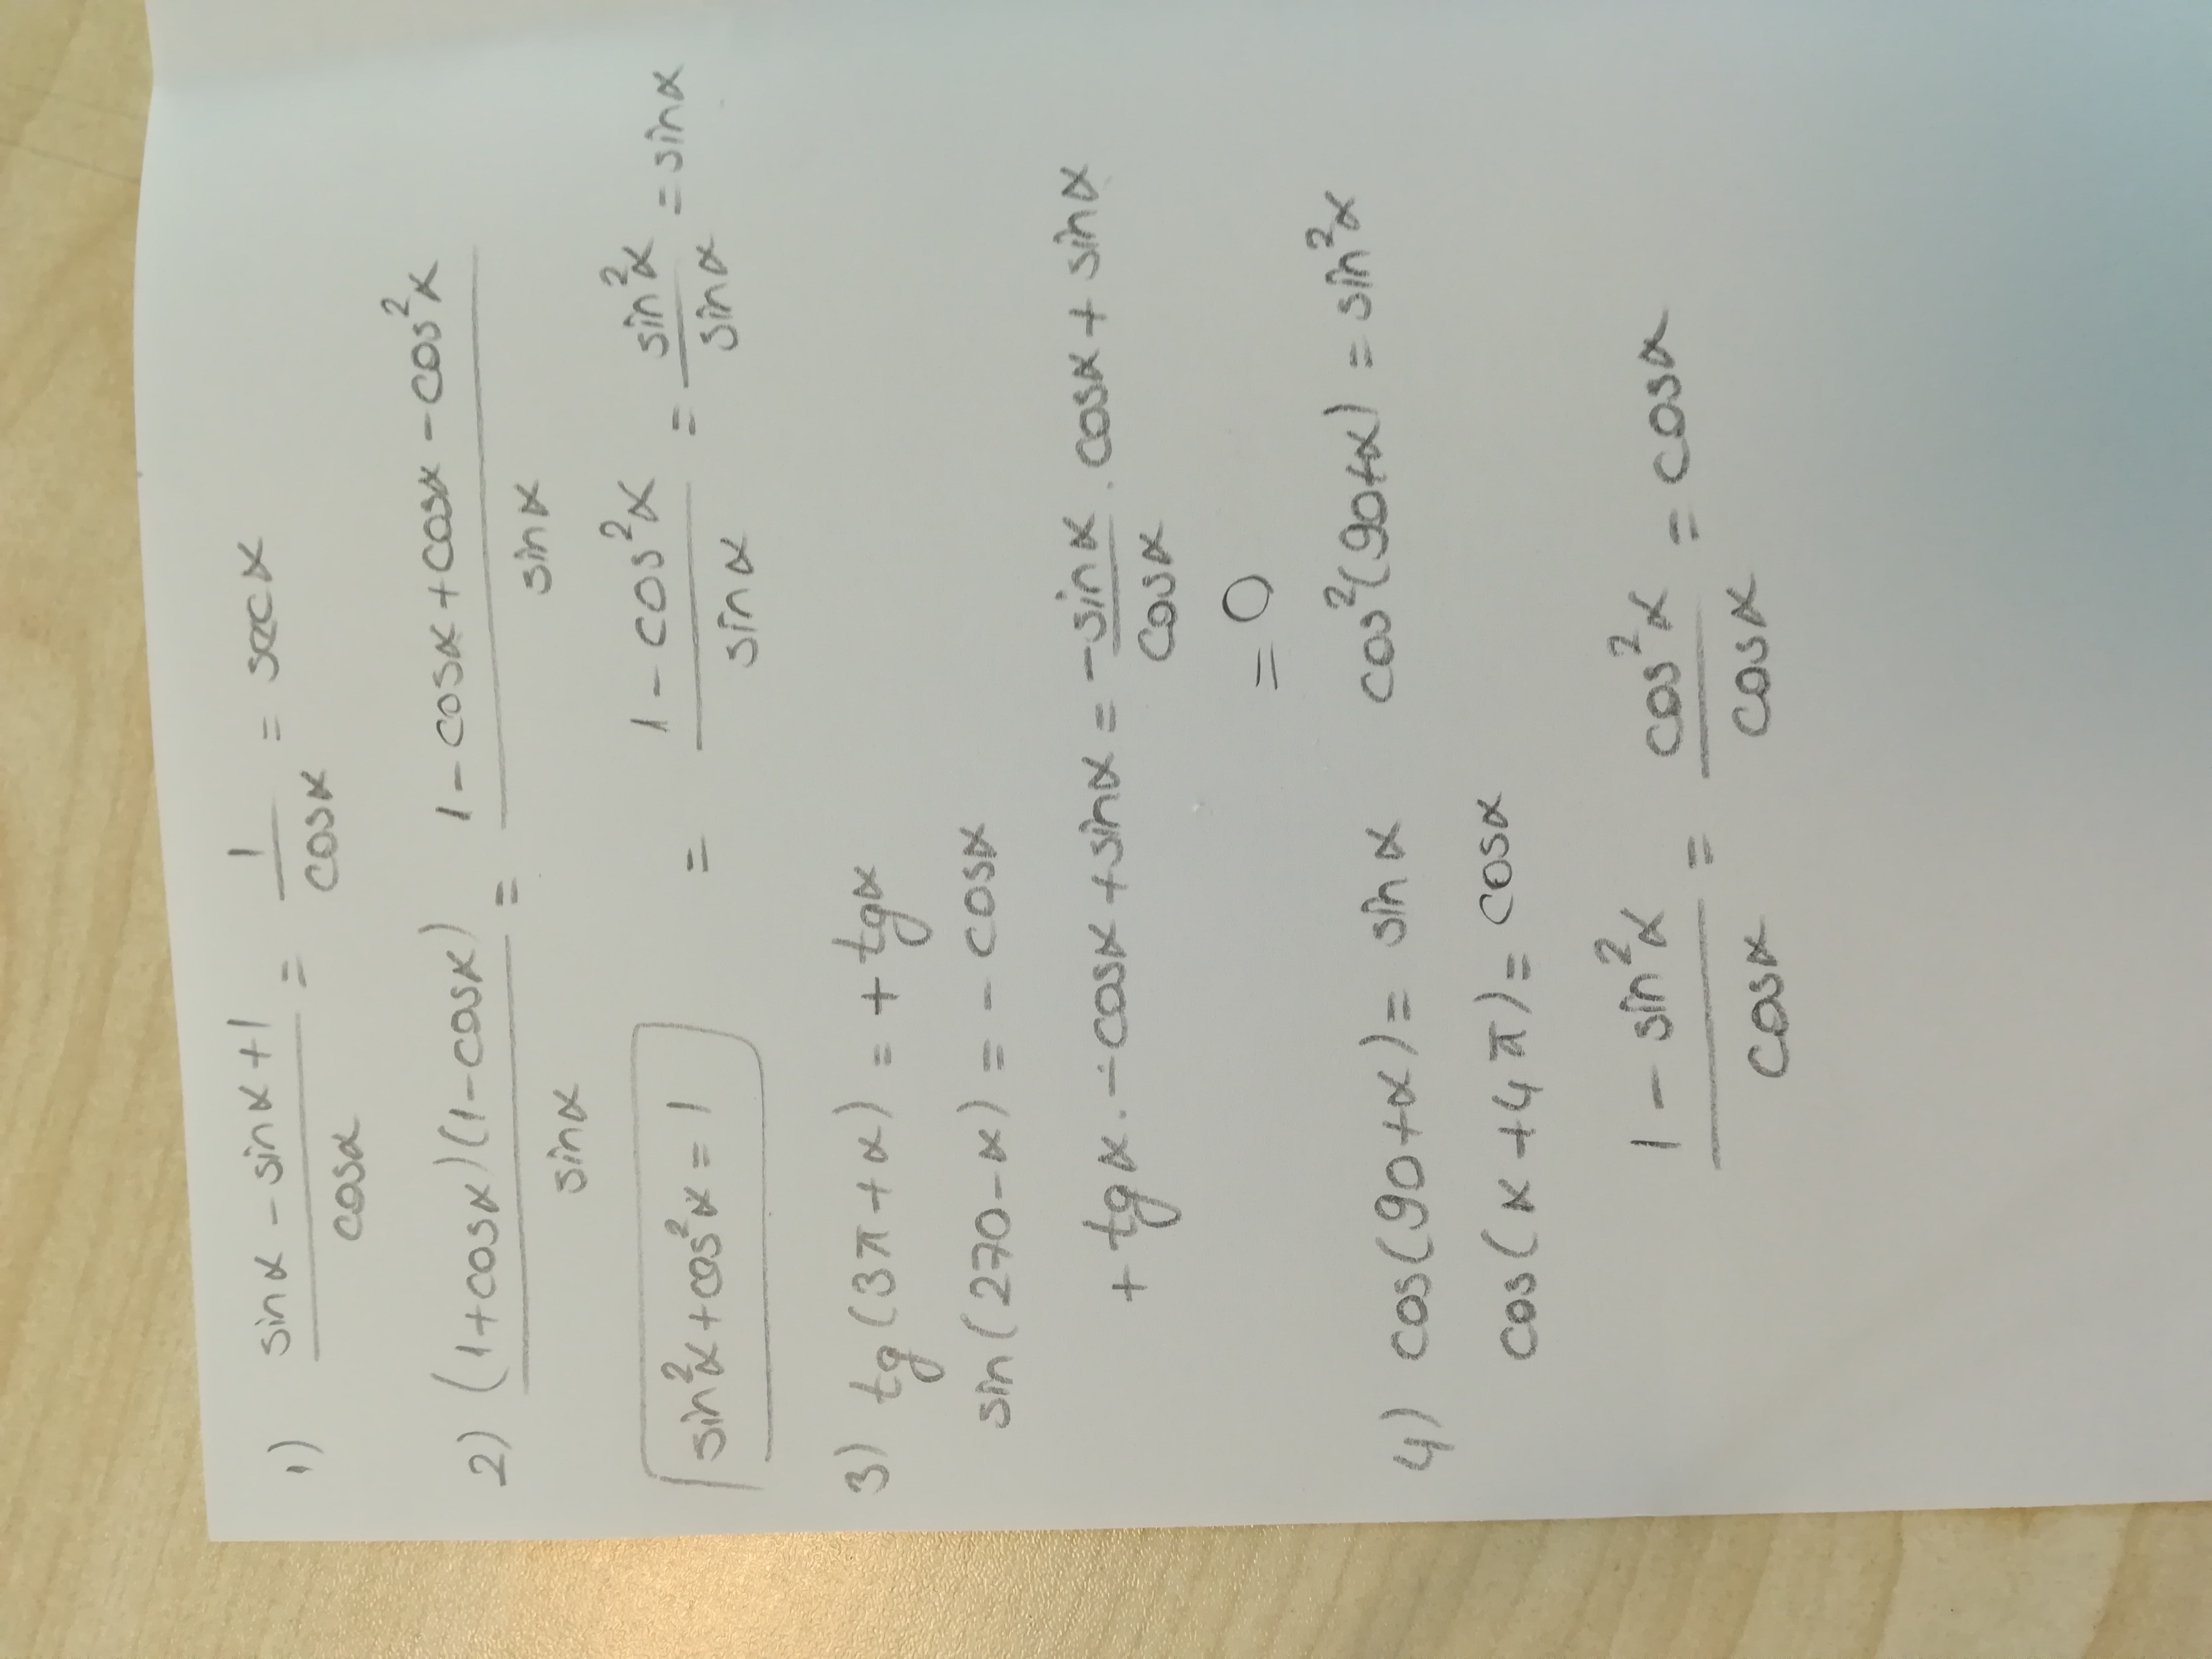 1) (sinα - sinα + 1)/cosα = 1/cosα = secα
2) ((1+cosα)(1-cosα))/sinα = (1 - cosα + cosα - cos²α)/sinα
sin²α + cos²α = 1 = (1 - cos²α)/sinα = sin²α/sinα = sinα
3) tg(3π+α) = + tgα
sin(270-α) = - cosα
+ tgα . -cosα + sinα = -sinα/cosα . cosα + sinα
= 0
4) cos(90+α) = sinα cos²(90+α) = sin²α
cos(α+4π) = cosα
(1 - sin²α)/cosα = cos²α/cosα = cosα